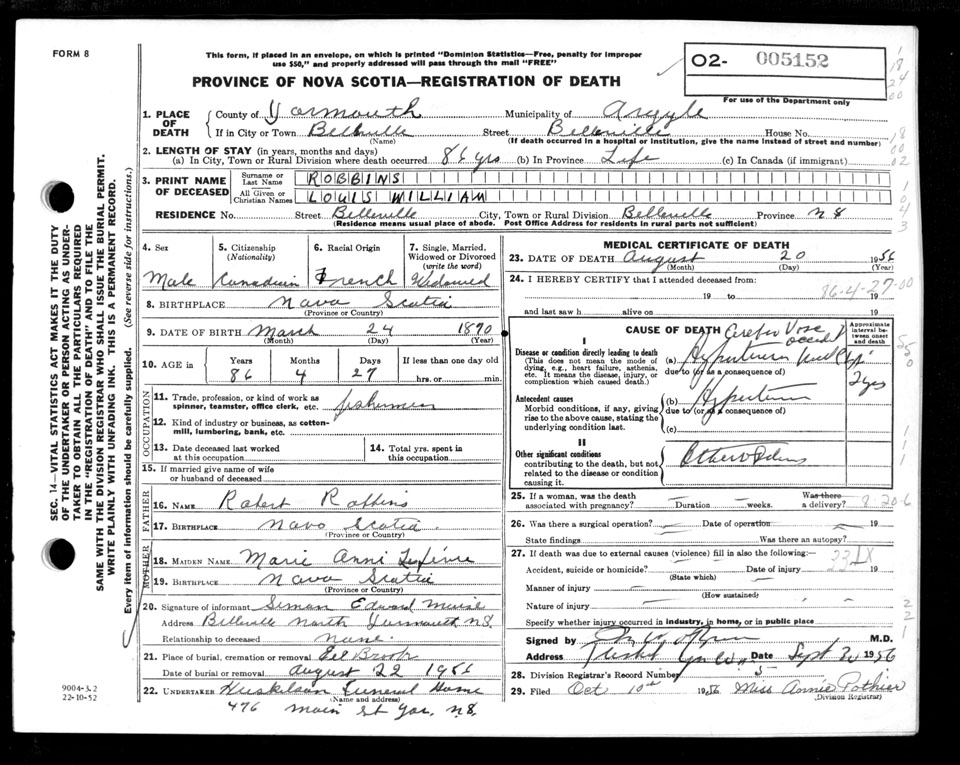 FORM 8
This form, if placed in an envelope, on which is printed "Dominion Statistics—Free, penalty for improper
use $50," and properly addressed will pass through the mail "FREE"
PROVINCE OF NOVA SCOTIA—REGISTRATION OF DEATH
O2- 005152
For use of the Department only
1. PLACE OF DEATH
County of Yarmouth Municipality of Argyle
If in City or Town Belleville Street Belleville House No.
(Name) (If death occurred in a hospital or institution, give the name instead of street and number)
2. LENGTH OF STAY (in years, months and days)
(a) In City, Town or Rural Division where death occurred 86 yrs (b) In Province Life (c) In Canada (if immigrant)
3. PRINT NAME OF DECEASED
Surname or Last Name ROBBINS
All Given or Christian Names LOUIS WILLIAM
RESIDENCE No. Street Belleville City, Town or Rural Division Belleville Province N S
(Residence means usual place of abode. Post Office Address for residents in rural parts not sufficient)
4. Sex 5. Citizenship (Nationality) 6. Racial Origin 7. Single, Married, Widowed or Divorced (write the word)
Male Canadian French Widowed
8. BIRTHPLACE Nova Scotia
(Province or Country)
9. DATE OF BIRTH March 24 1870
(Month) (Day) (Year)
10. AGE in Years Months Days If less than one day old
86 4 27 hrs. or min.
OCCUPATION
11. Trade, profession, or kind of work as spinner, teamster, office clerk, etc. fisherman
12. Kind of industry or business, as cotton-mill, lumbering, bank, etc.
13. Date deceased last worked at this occupation
14. Total yrs. spent in this occupation
15. If married give name of wife or husband of deceased
FATHER
16. Name Robert Robbins
17. Birthplace Nova Scotia
(Province or Country)
MOTHER
18. Maiden Name Marie Anni
19. Birthplace Nova Scotia
(Province or Country)
20. Signature of informant Simon Edward Muise
Address Belleville North Yarmouth N.S.
Relationship to deceased None
21. Place of burial, cremation or removal Eel Brook
Date of burial or removal August 22 1956
22. Undertaker Huskilson Funeral Home
(Name and address)
476 Main St Yar. N.S.
MEDICAL CERTIFICATE OF DEATH
23. DATE OF DEATH August 20 1956
(Month) (Day) (Year)
24. I HEREBY CERTIFY that I attended deceased from:
19 to 19
86-4-27-00
and last saw h alive on 19
CAUSE OF DEATH
Approximate interval between onset and death
I
Disease or condition directly leading to death
(This does not mean the mode of dying, e.g., heart failure, asthenia, etc. It means the disease, injury, or complication which caused death.)
(a)
due to (or as a consequence of)
2 yrs
Antecedent causes
Morbid conditions, if any, giving rise to the above cause, stating the underlying condition last.
(b)
due to (or as a consequence of)
(c)
II
Other significant conditions
contributing to the death, but not related to the disease or condition causing it.
25. If a woman, was the death associated with pregnancy? Duration weeks. Was there a delivery?
8-20-6
26. Was there a surgical operation? Date of operation 19
State findings Was there an autopsy?
27. If death was due to external causes (violence) fill in also the following:—
Accident, suicide or homicide? Date of injury 19
(State which)
Manner of injury
(How sustained)
Nature of injury
Specify whether injury occurred in industry, in home, or in public place
Signed by M.D.
Address Tusket Date Sept 30 1956
28. Division Registrar's Record Number 5
29. Filed Oct 10th 1956 Miss Annie Pothier
(Division Registrar)
SEC. 14—VITAL STATISTICS ACT MAKES IT THE DUTY
OF THE UNDERTAKER OR PERSON ACTING AS UNDER-
TAKER TO OBTAIN ALL THE PARTICULARS REQUIRED
IN THE "REGISTRATION OF DEATH" AND TO FILE THE
SAME WITH THE DIVISION REGISTRAR WHO SHALL ISSUE THE BURIAL PERMIT.
WRITE PLAINLY WITH UNFADING INK. THIS IS A PERMANENT RECORD.
Every item of information should be carefully supplied. (See reverse side for instructions.)
9004-3.2
22-10-52